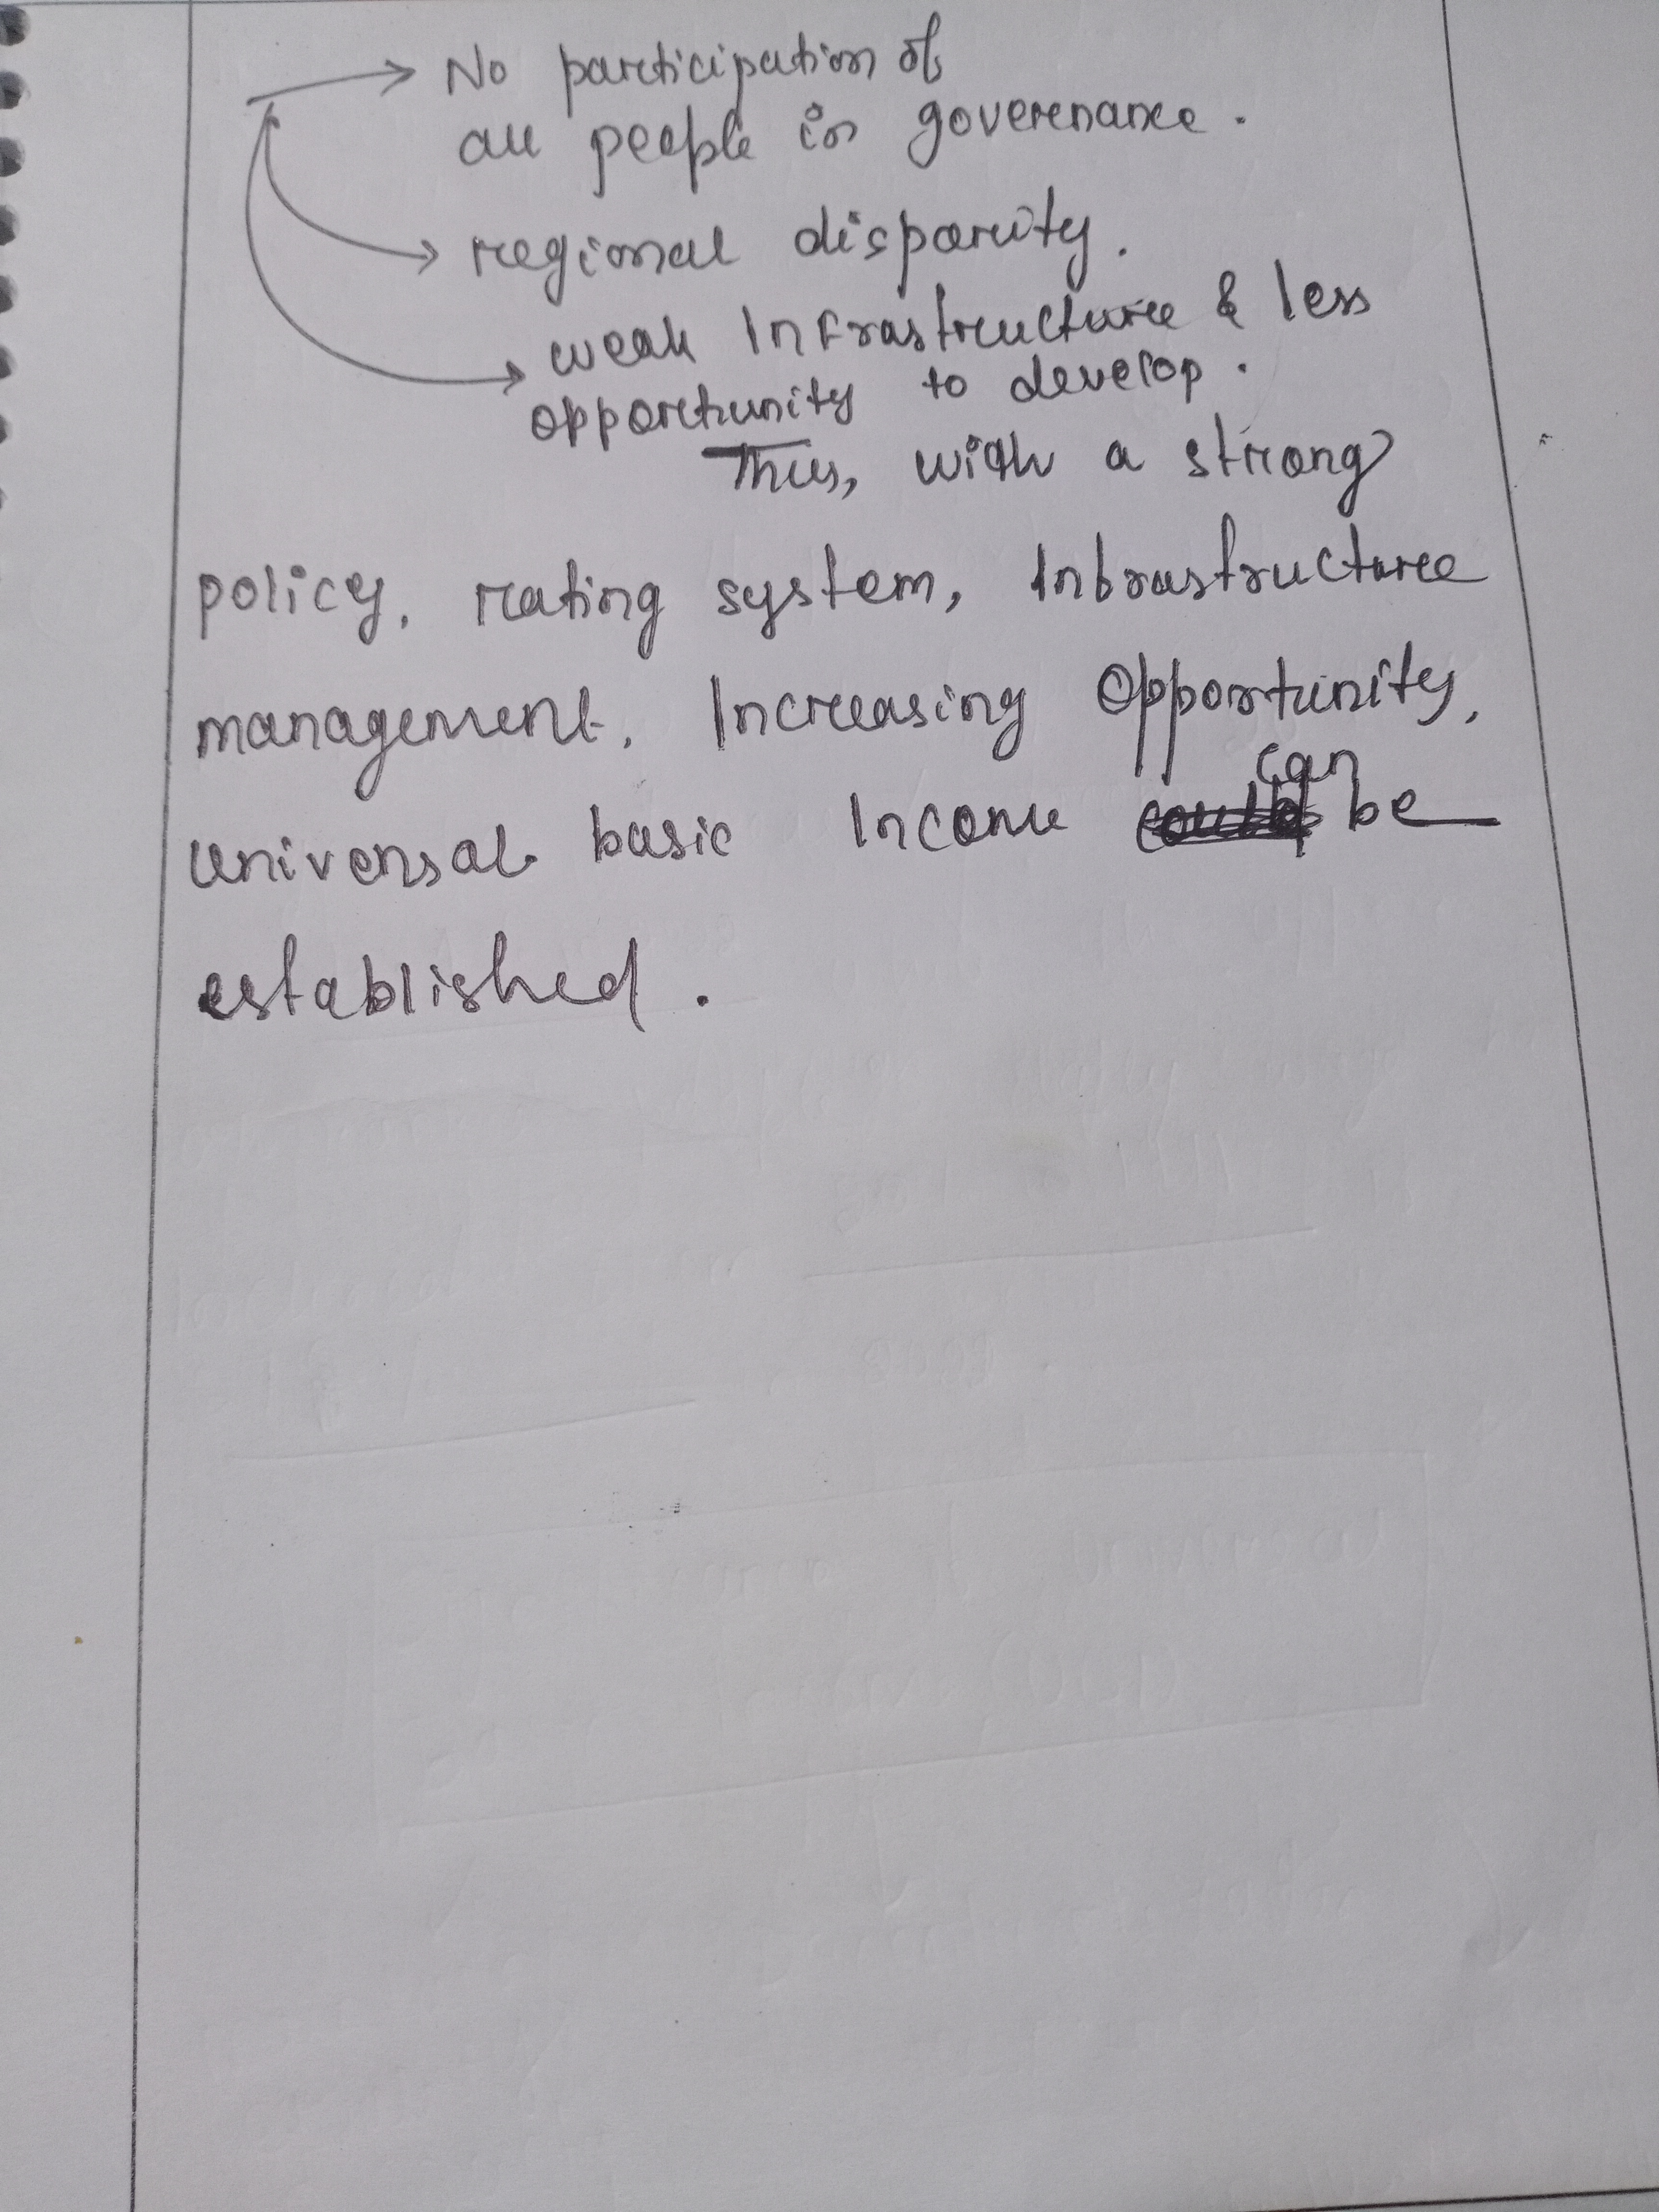 No participation of
all people in governance.
regional disparity.
weak Infrastructure & less
opportunity to develop.
Thus, with a strong
policy, rating system, Infrastructure
management, Increasing Opportunity,
can
universal basic Income could be
established.